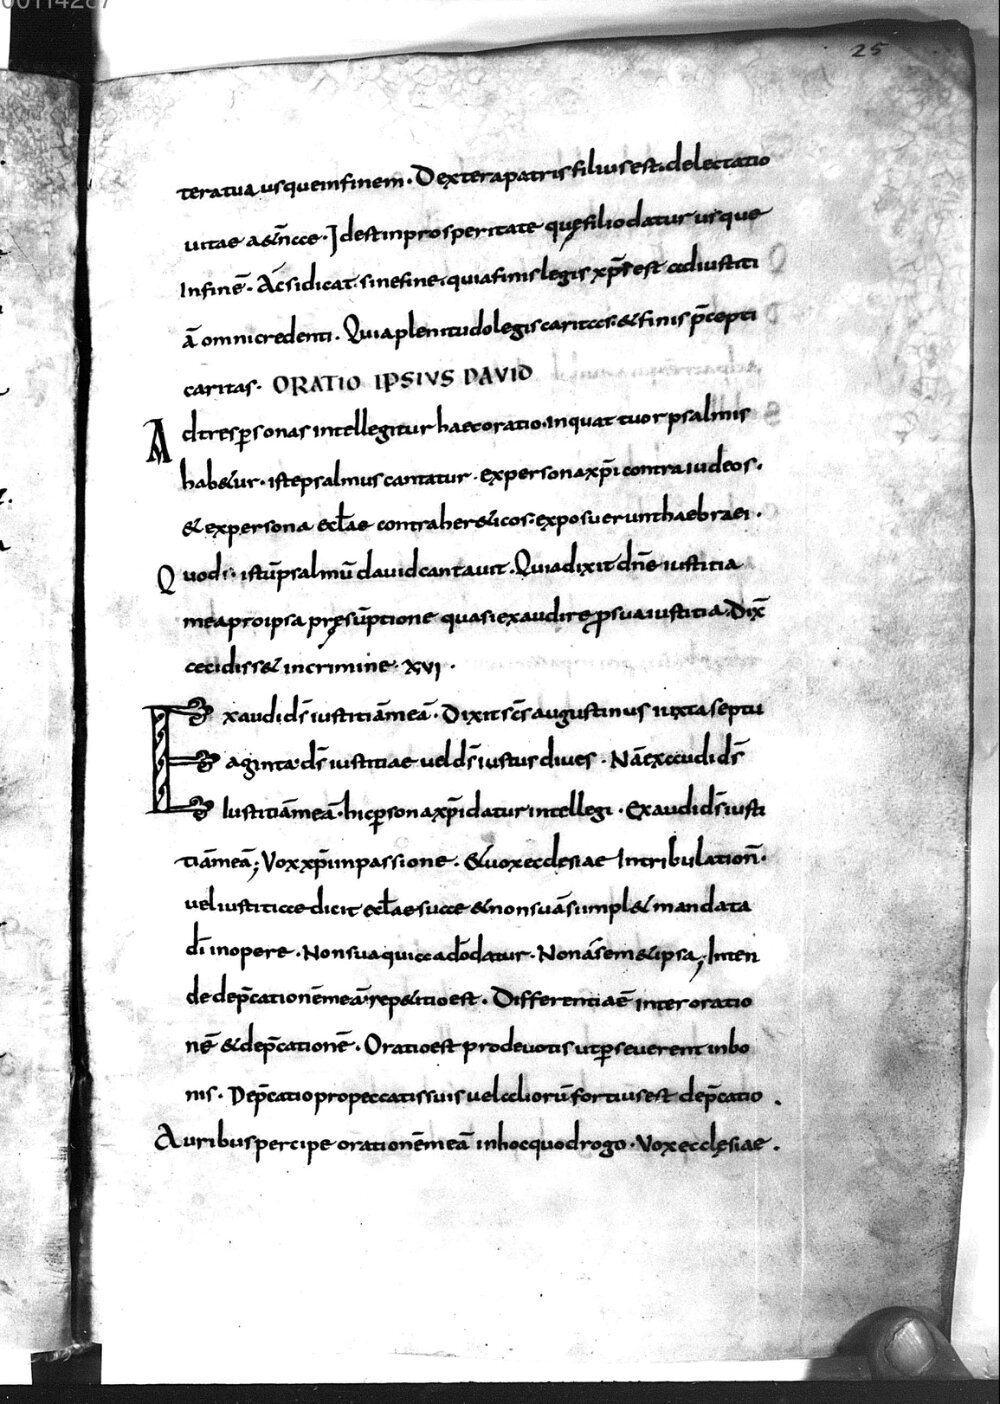 00114287
25
teratua usque in finem. Dextera patris filius est. delectatio
uitae aeternae. Id est in prosperitate quę filio datur usque
Infinē. Ac̄ si dicat. sine fine. quia finis legis xp̄s est ad iustiti
ā omni credenti. Quia plenitudo legis caritas. & finis p̄cepti
caritas. ORATIO IPSIUS DAVID
Ad tres p̲sonas intellegitur haec oratio. In quattuor psalmis
hab&ur. iste psalmus cantatur. ex persona xp̄i contra iudeos.
& ex persona eccl̄ae contra her&icos. exposuerunt haebraei.
Quod istū psalmū dauid cantauit. Quia dixit dn̄e iustitia
mea pro ipsa pręsūptione quasi exaudire p̲ sua iustitia. Dix̄
cecidiss& in crimine. XVI.
Exaudi ds̄ iustitiā meā. Dixit sc̄s augustinus iuxta septu
aginta. ds̄ iustitiae uel ds̄ iustus diues. Nā exaudi ds̄
Iustitiā meā. hic p̲sona xp̄i datur intellegi. Exaudi ds̄ iusti
tiā meā; Vox xp̄i in passione. & uox ecclesiae In tribulation̄.
uel iustitiae dicit eccl̄ae suae & non suā si impl& mandata
dī in opere. Non sua quia a dō datur. Non ās̄em & ipsa; Inten
de dep̄cationē meā rep&itio est. Differentia ē inter oratio
nē & dep̄cationē. Oratio est pro deuotis ut p̲seuerent in bo
nis. Dep̄catio pro peccatis suis uel aliorū fortius est dep̄catio.
Auribus percipe orationē meā in hoc quod rogo. Vox ecclęsiae.